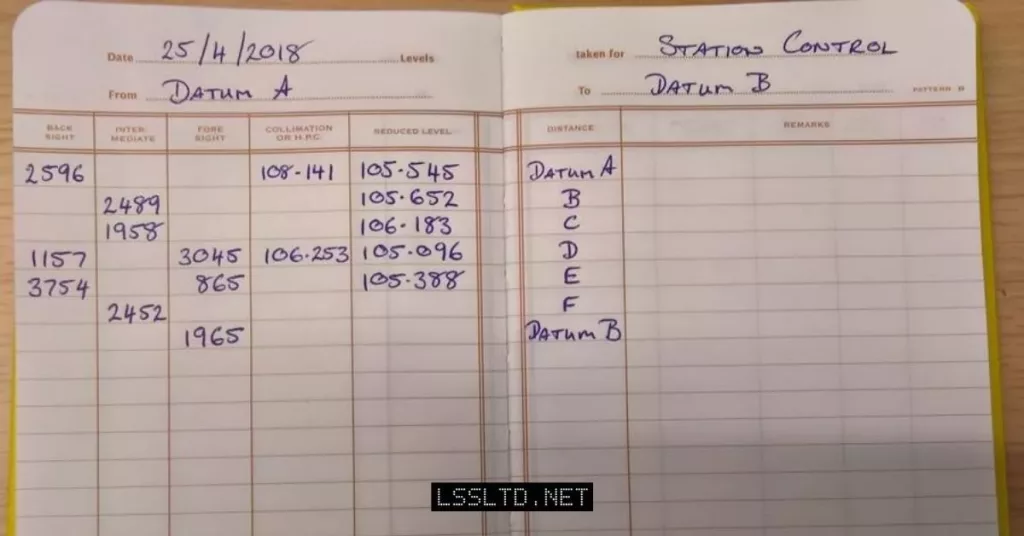 Date 25/4/2018 Levels taken for STATION CONTROL
From DATUM A To DATUM B PATTERN D
BACK SIGHT INTER MEDIATE FORE SIGHT COLLIMATION OR H.P.C. REDUCED LEVEL DISTANCE REMARKS
2596 108.141 105.545 DATUM A
2489 105.652 B
1958 106.183 C
1157 3045 106.253 105.096 D
3754 865 105.388 E
2452 F
1965 DATUM B
LSSLTD.NET